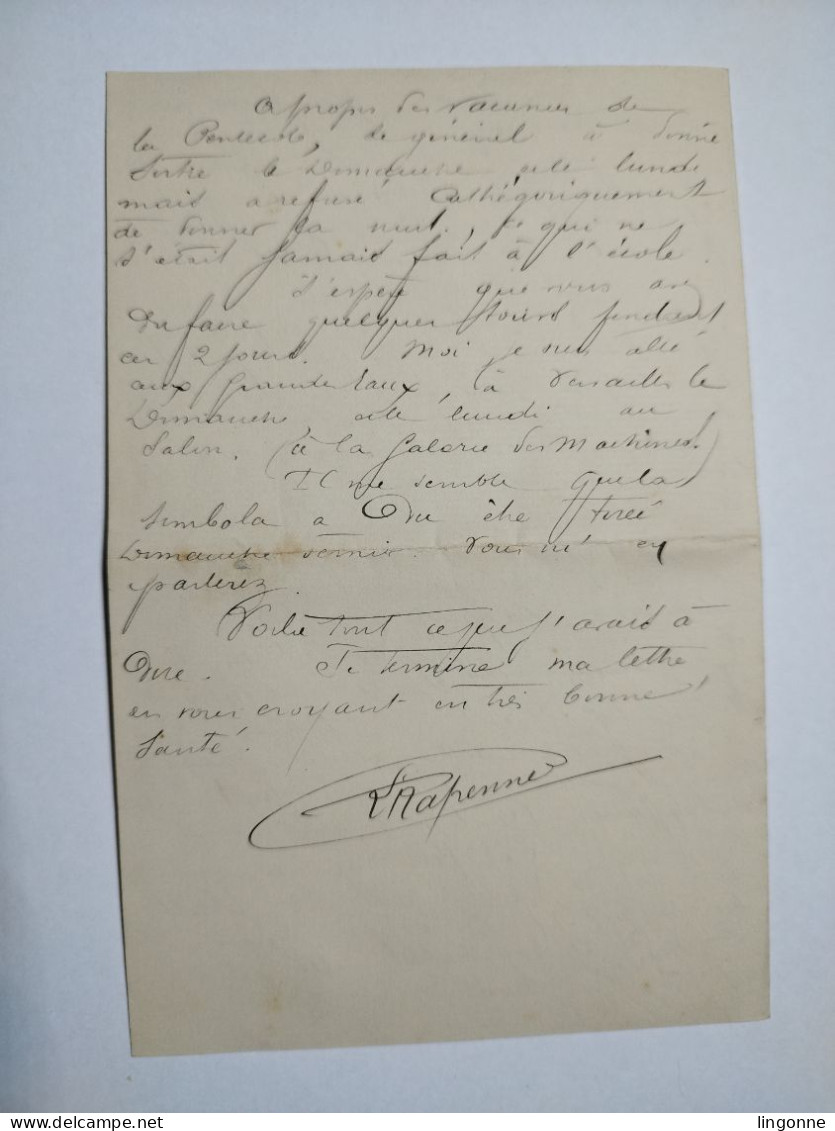 A propos des vacances de
la Pentecote, le général à donné
sortie le Dimanche et le lundi
mais a refusé Cathégoriquement
de donner la nuit, ce qui ne
s'était jamais fait à l'école.
J'espère que vous avez
du faire quelques tours pendant
ces 2 jours. Moi je suis allé
aux Grandes Eaux, à Versailles le
Dimanche et le lundi au
Salon. (à la Galerie des Machines)
Il me semble que la
tombola a Du être tirée
Dimanche dernier. Vous m'en
parlerez.
Voila tout ce que j'avais à
Dire. Je termine ma lettre
en vous croyant en très bonne
Santé.
Rapenne
www.delcampe.net
lingonne